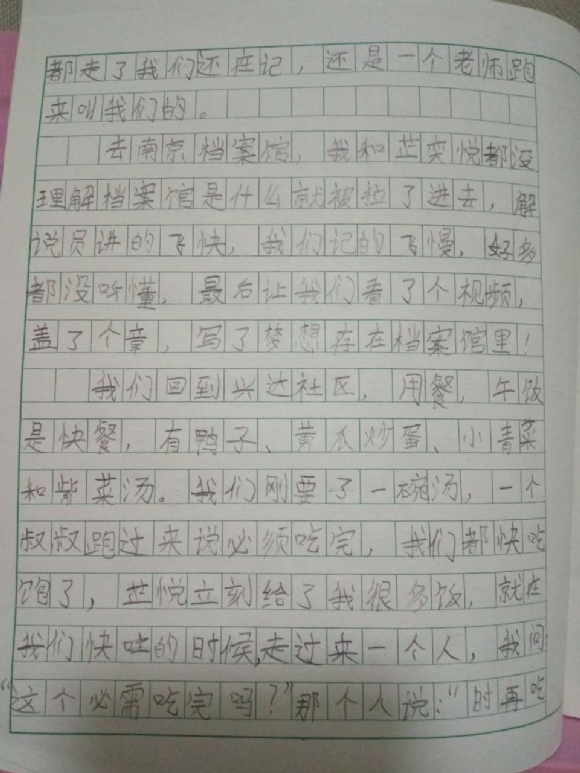 都走了我们还在记，还是一个老师跑
来叫我们的。
去南京档案馆，我和芷奕悦都没
理解档案馆是什么就被拉了进去，解
说员讲的飞快，我们记的飞慢，好多
都没听懂，最后让我们看了个视频，
盖了个章，写了梦想存在档案馆里！
我们回到兴达社区，用餐，午饭
是快餐，有鸭子、黄瓜炒蛋、小青菜
和紫菜汤。我们刚要了一碗汤，一个
叔叔跑过来说必须吃完，我们都快吃
饱了，芷悦立刻给了我很多饭，就在
我们快吐的时候,走过来一个人，我问：
“这个必需吃完吗？”那个人说：“时再吃